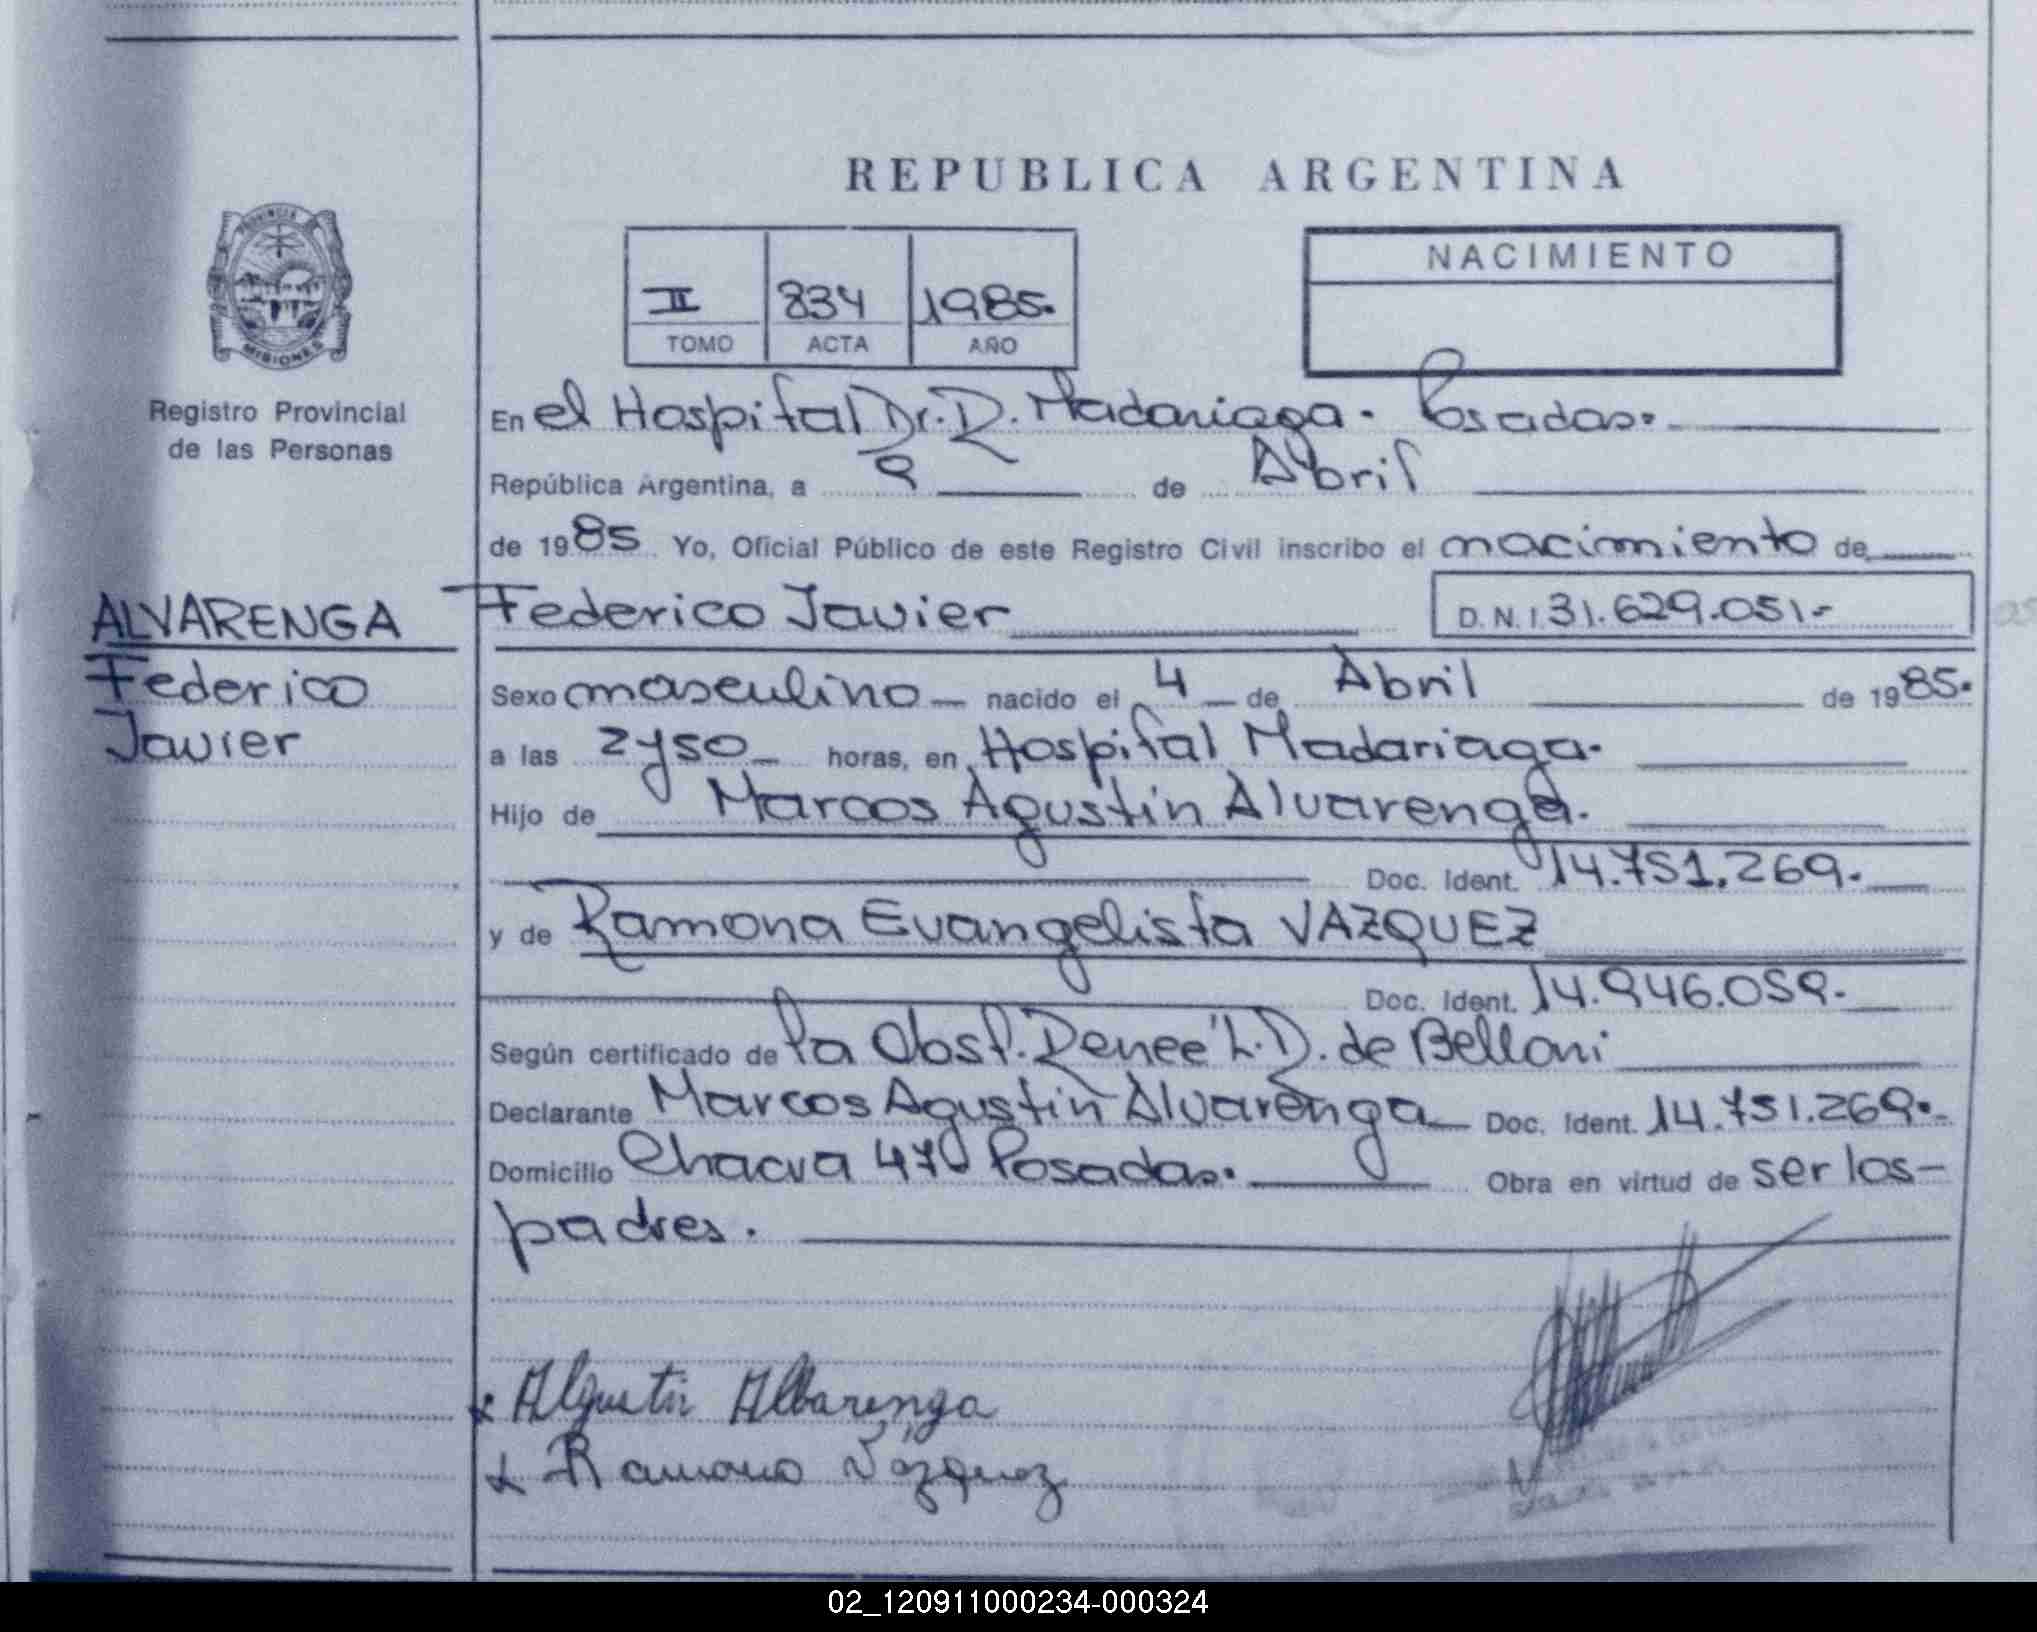 REPUBLICA ARGENTINA
PROVINCIA
MISIONES
Registro Provincial
de las Personas
II 834 1985.
TOMO ACTA AÑO
NACIMIENTO
En el Hospital Dr. R. Madariaga. Posadas.
República Argentina, a 9 de Abril
de 1985 Yo, Oficial Público de este Registro Civil inscribo el nacimiento de
ALVARENGA
Federico
Javier
Federico Javier D.N.I. 31.629.051.-
Sexo masculino nacido el 4 de Abril de 1985.
a las 2 y 50 horas, en Hospital Madariaga.
Hijo de Marcos Agustín Alvarenga.
Doc. Ident. 14.751.269.
y de Ramona Evangelista VAZQUEZ
Doc. Ident. 14.946.059.
Según certificado de la Obst. Renee L. D. de Belloni
Declarante Marcos Agustín Alvarenga Doc. Ident. 14.751.269.
Domicilio Chacra 47 Posadas. Obra en virtud de ser los-
padres.
x Algustin Albarenga
x Ramona Vazquez
02_120911000234-000324